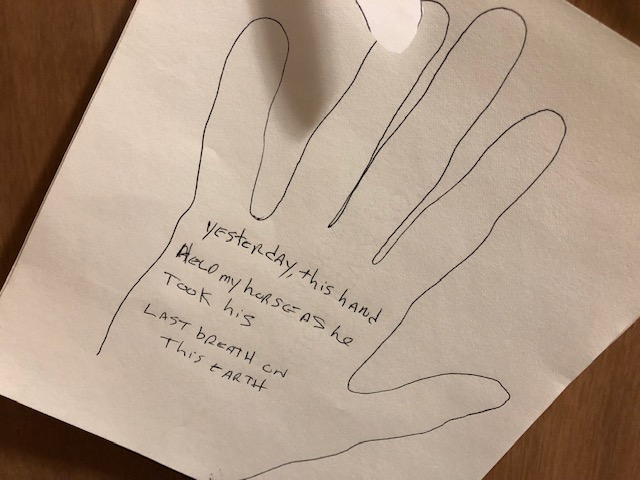 yesterday, this hand
Held my horse as he
Took his
Last breath on
This Earth